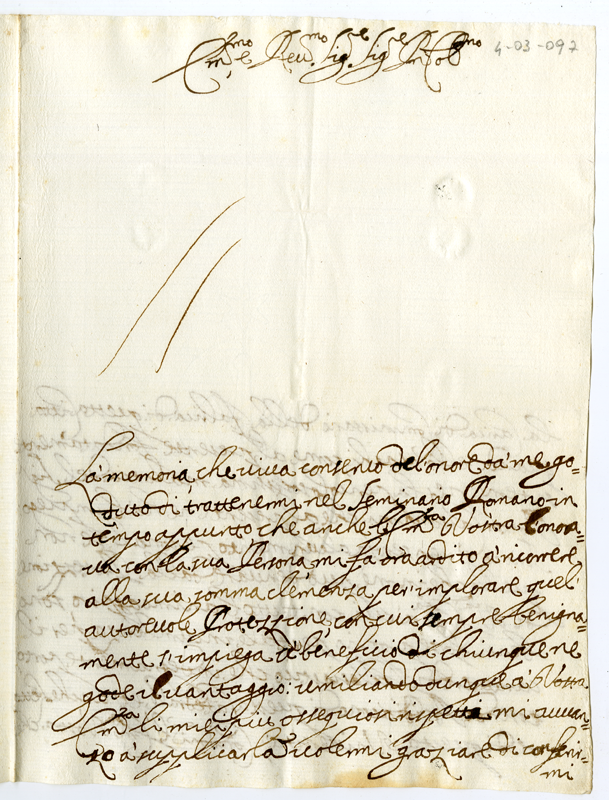 Em.mo e Reu.mo Sig.re Sig.re P'ron Col.mo
4-03-092
La memoria, che viva conseruo del'onore da me go=
duto di trattenermi nel Seminario Romano in
tempo appunto che anche l'Em.za Vostra l'onora=
ua con la sua Persona mi fa ora ardito à ricorrere
alla sua somma clemenza per implorare quel'
autoreuole Protezzione, con cui sempre benigna=
mente s'impiega à beneficio di chiunque ne
gode il vantaggio: umiliando dunque à Vostra
Em.za li miei piu ossequiosi rispetti mi auuan=
zo à supplicarla à volermi graziare di conferir=
mi